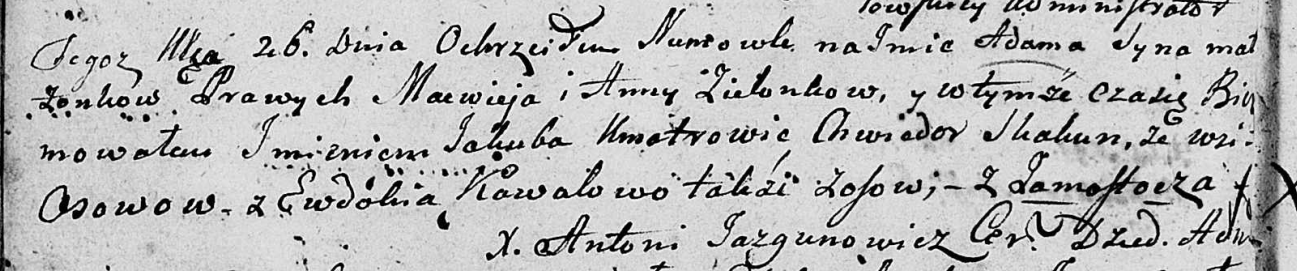 Administrator
Tegoż Mca 26. Dnia Ochrzciłem Niemowle na Imie Adama Syna mał
żonkow Prawych Macwieja i Anny Zielonkow, y w tymże czasie Birz
mowałem Imieniem Jakuba Kmotrowie Chwiedor Skakun, ze wsi
Osowow - z Ewdokia Kowalowo także z Osow; - z Zamostocza
X. Antoni Jazgunowicz Cer. Dzied. Adm